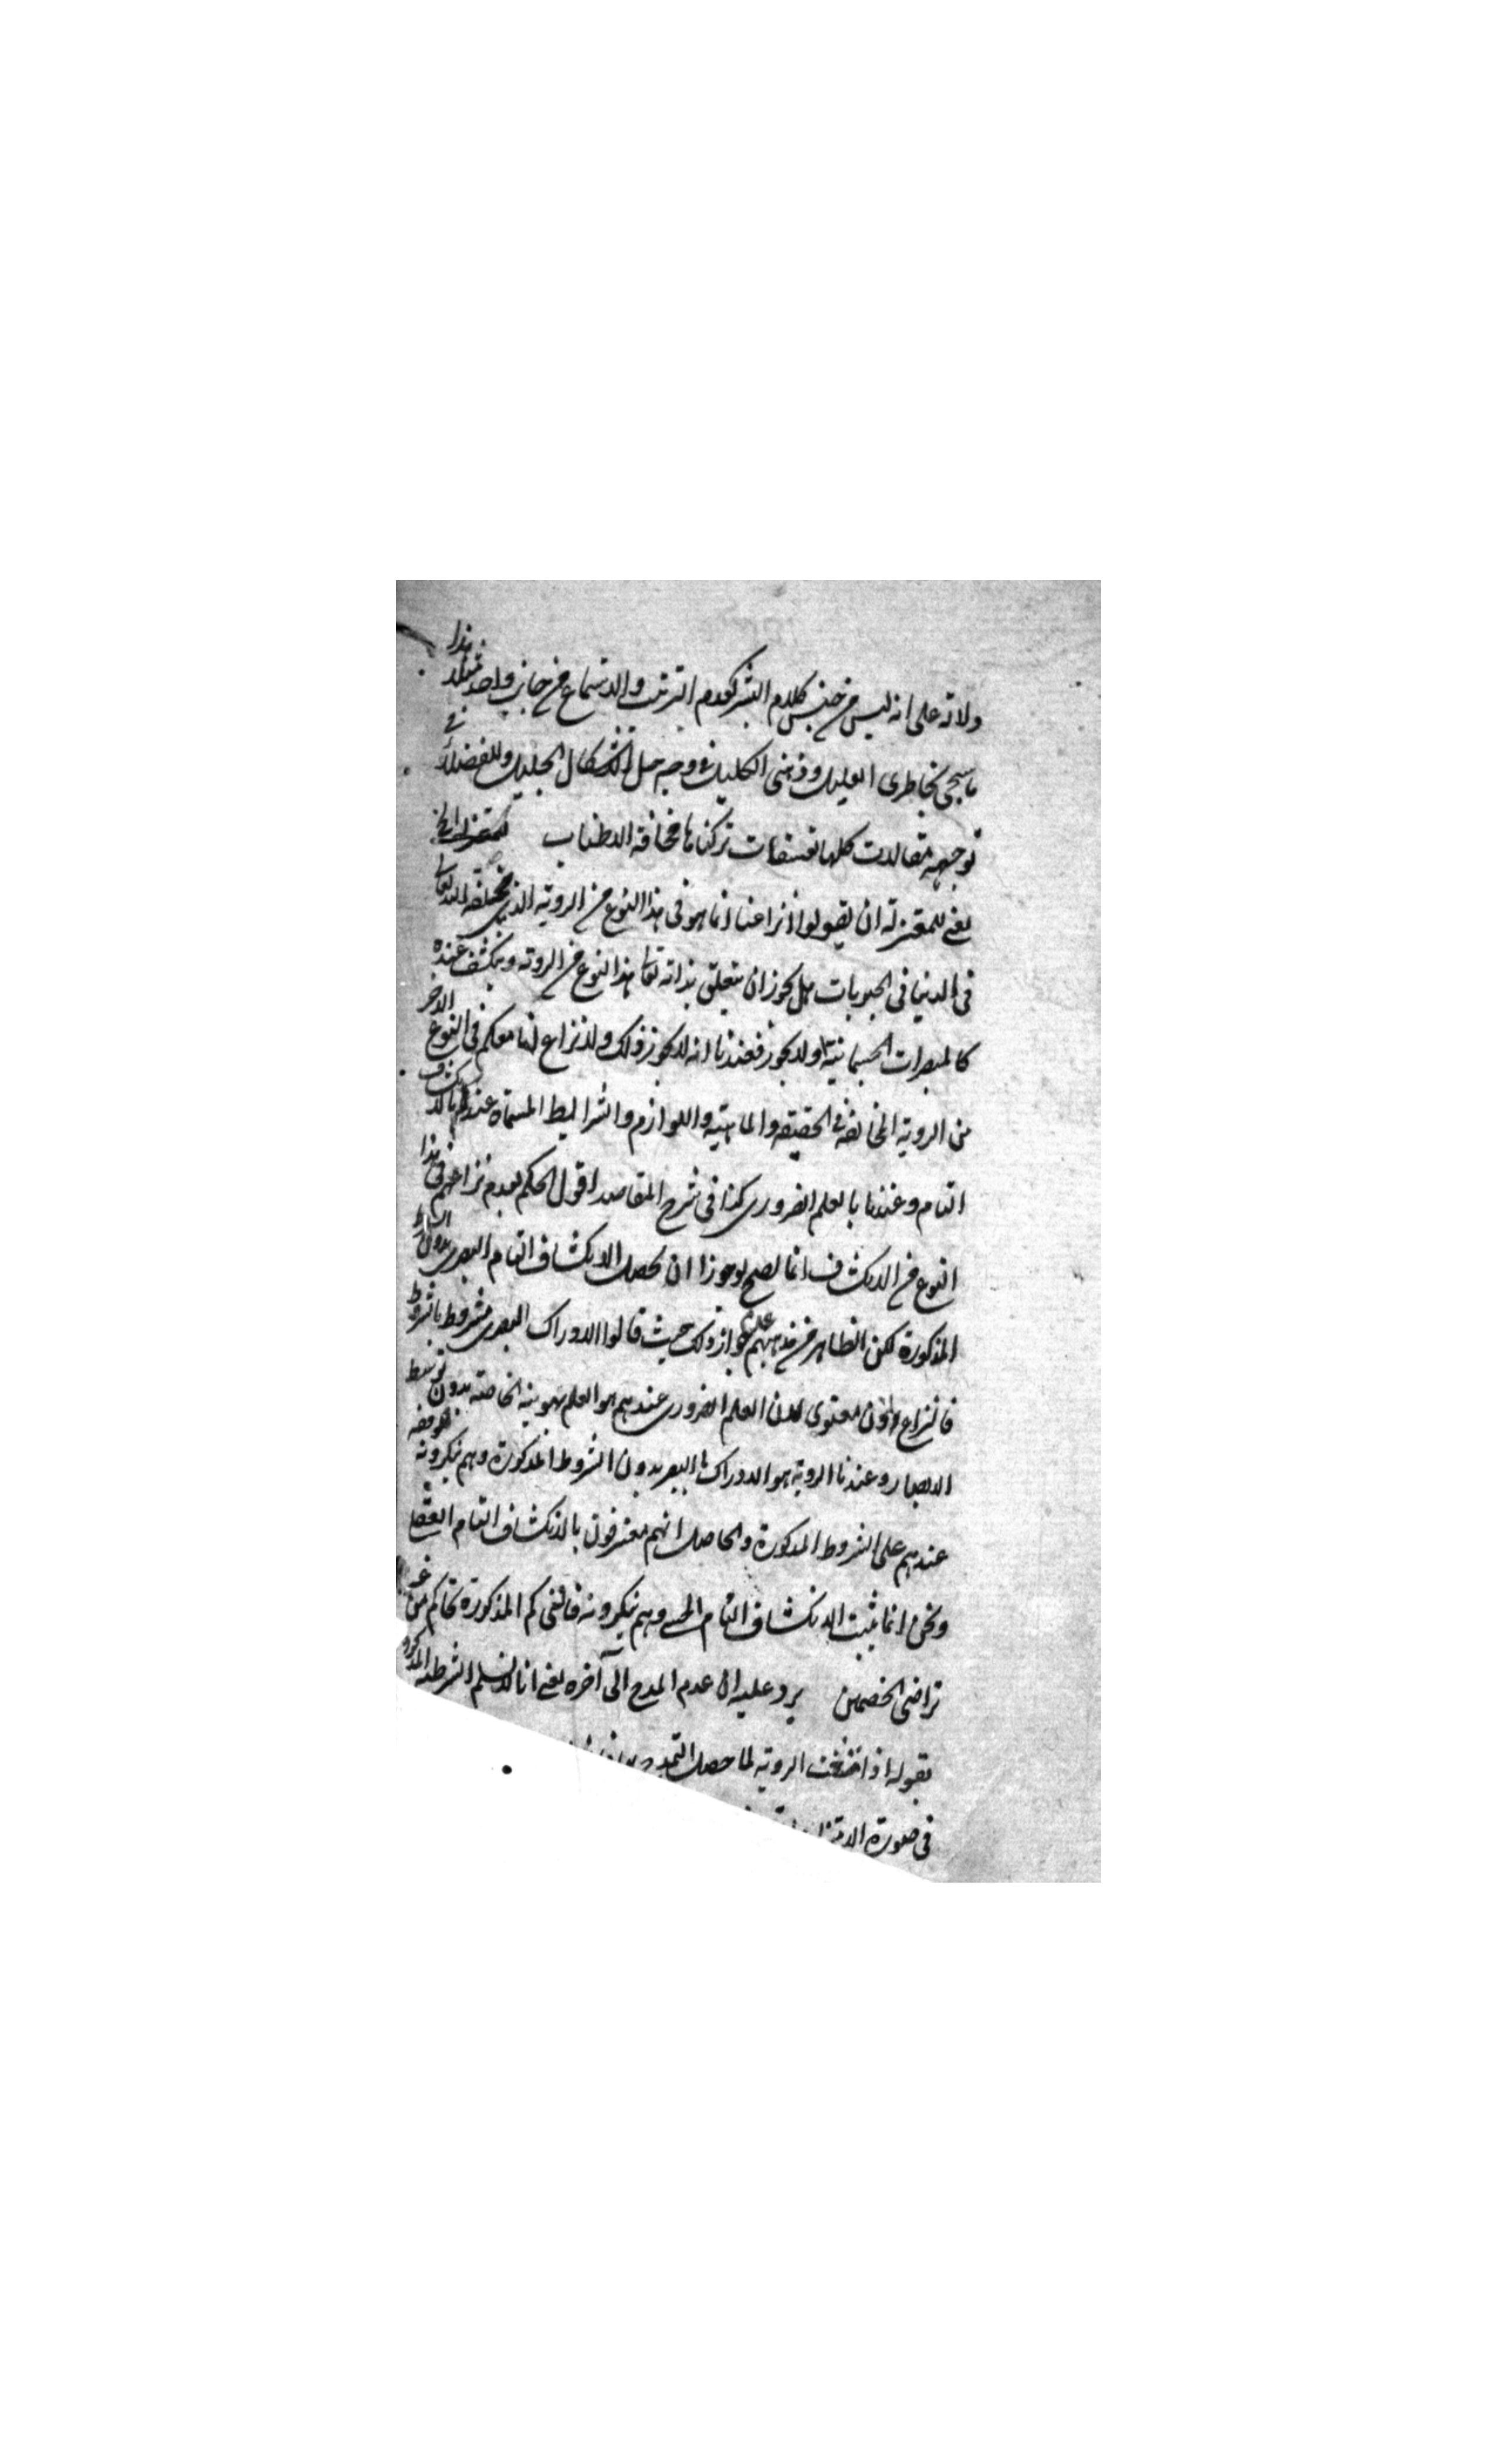 ولانه على انه ليس من جنس كلام البشر كعدم الترتيب والاستماع من جانب واحد مثلا هذا
ما سنح بخاطرى العليل وذهنى الكليل فى وجه حل الاشكال الجليل وللفضلاء فى
توجيهه مقالات كلها تعسفات تركناها مخافة الاطناب
يعنى للمعتزلة ان يقولوا نزاعنا انما هو فى هذا النوع من الروية الذى يخلقه الله تعالى
فى الدنيا فى هل يجوز ان يتعلق بذاته تعالى هذا النوع من الروية وينكشف عنده
كالمبصرات الجسمانية اولا يجوز فعندنا انه لا يجوز ذلك ولا نزاع لنا معكم فى النوع الاخر
من الروية المخالفة فى الحقيقة والماهية واللوازم والشرايط المسماة عندكم بالانكشاف
التام وعندنا بالعلم الضرورى كذا فى شرح المقاصد اقول الحكم بعدم نزاعهم فى هذا
النوع من الانكشاف انما يصح لو جوزا ان يحصل الانكشاف التام البصرى بدون الشرائط
المذكورة لكن الظاهر من مذهبهم عدم جواز ذلك حيث قالوا الادراك البصرى مشروط بالشروط
فالنزاع معنوى لان العلم الضرورى عندهم هو العلم بهويته الخاصة بدون توسط
الابصار وعندنا الروية هو الادراك بالبصر بدون الشروط المذكورة وهم ينكرونه لتوقفه
عندهم على الشروط المذكورة والحاصل انهم معترفون بالانكشاف التام العقلى
ونحن انما نثبت الانكشاف التام الحسى وهم ينكرونه فالمحاكمة المذكورة تحاكم من غير
تراضى الخصمين يرد عليه ان عدم المدح الى آخره يعنى انا لا نسلم الشرطية المذكورة
بقوله اذ امتنعت الروية لما حصل التمدح
فى صورة